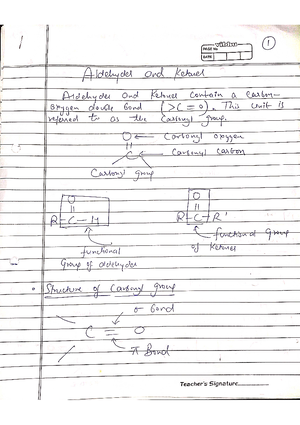 vibha
PAGE No.
DATE
1
Aldehydes and Ketones
Aldehydes and Ketones contain a carbon-
oxygen double bond (>C=O). This unit is
referred to as the carbonyl group.
O ← Carbonyl oxygen
||
C ← Carbonyl carbon
Carbonyl group
O
||
R-C-H
O
||
R-C-R'
functional
Group of aldehydes
functional Group
of Ketones
• Structure of Carbonyl group
σ bond
C = O
π Bond
Teacher's Signature